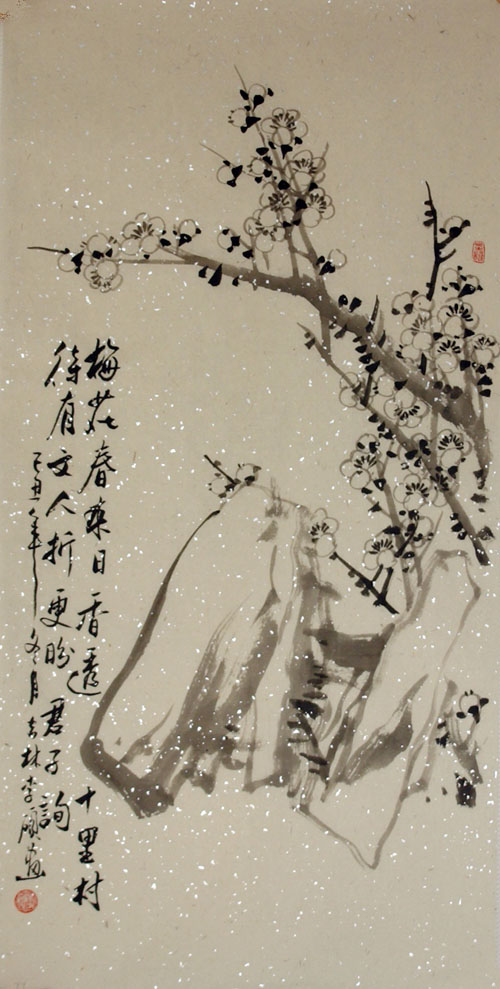 梅花春日香十里村
待有文人折更盼君子詢
己丑年冬月吉林李画